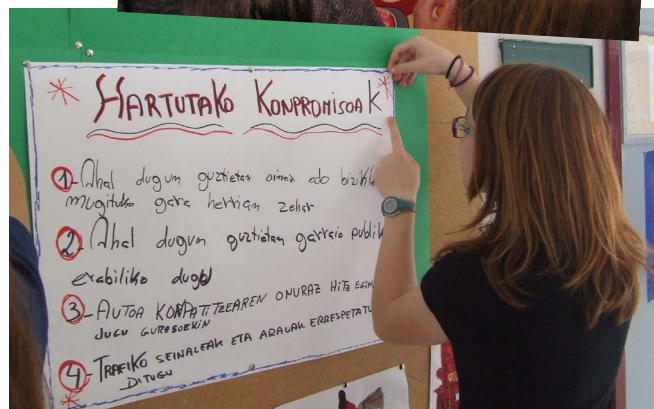 HARTUTAKO KONPROMISOAK
1- Ahal dugun guztietan oinez edo bizikle
mugituko gara herrian zehar
2- Ahal dugun guztietan garraio publik
erabiliko dugu
3- AUTOA KONPATITZEAREN ONURAZ HITZ EGIN
DUGU GURASOEKIN
4- TRAFIKO SEINALEAK ETA ARAUAK ERRESPETATU
DITUGU